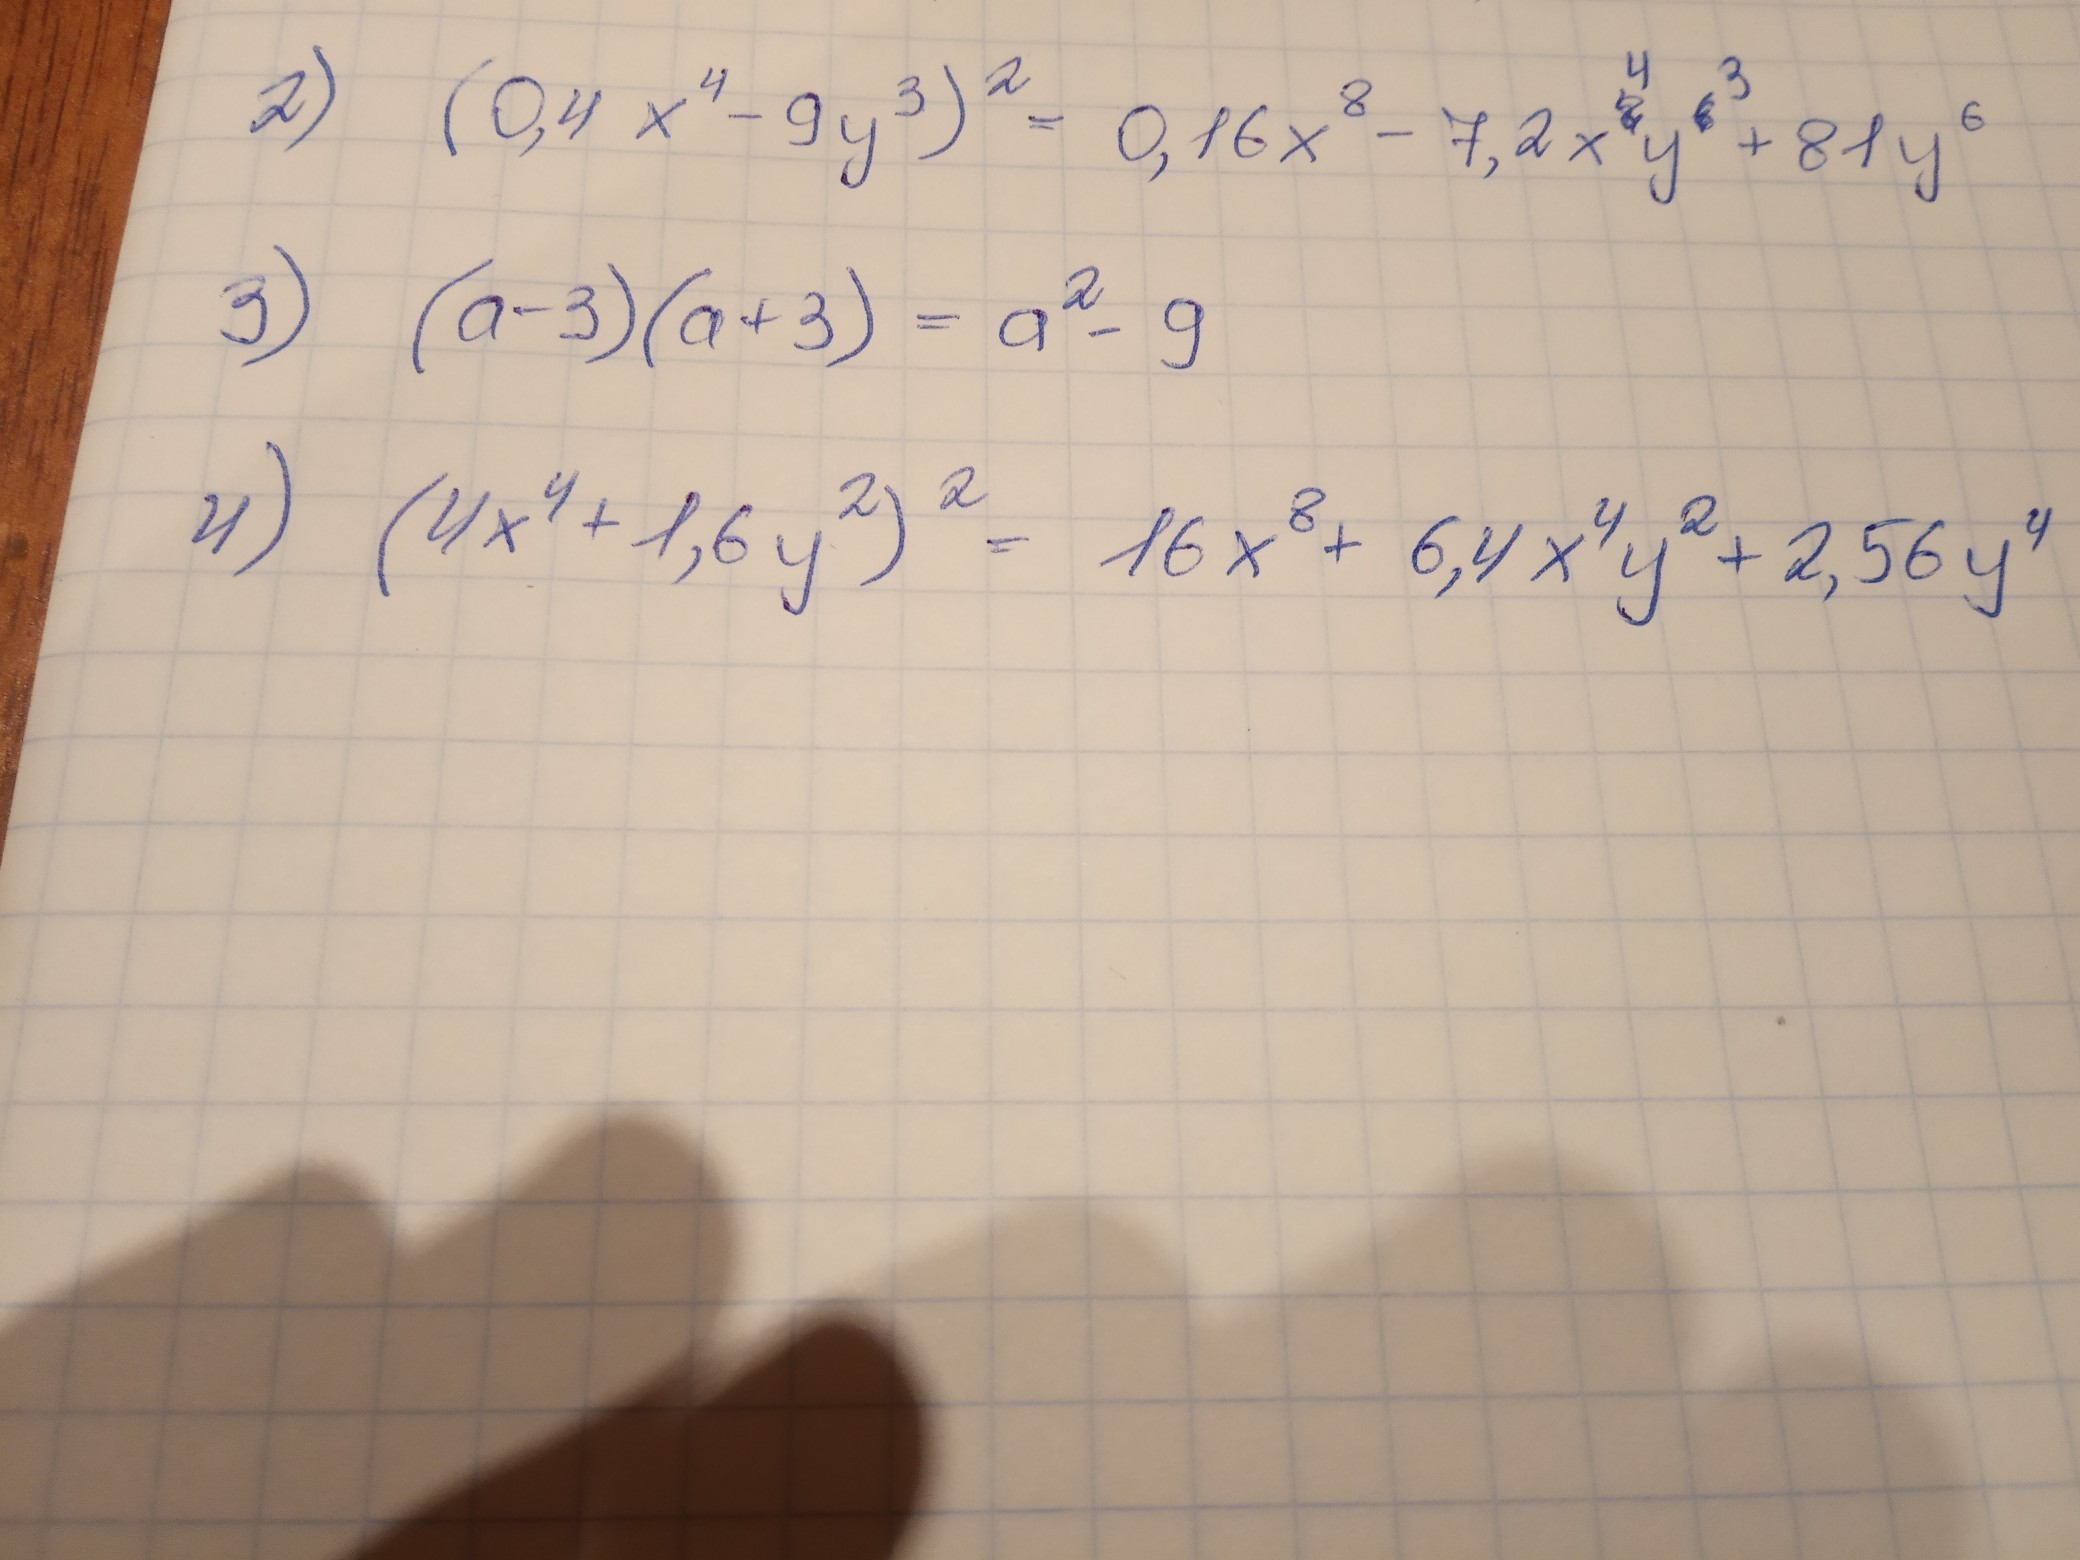 2) (0,4x⁴-9y³)² = 0,16x⁸-7,2x⁴y³+81y⁶
3) (a-3)(a+3) = a²-9
4) (4x⁴+1,6y²)² = 16x⁸+6,4x⁴y²+2,56y⁴